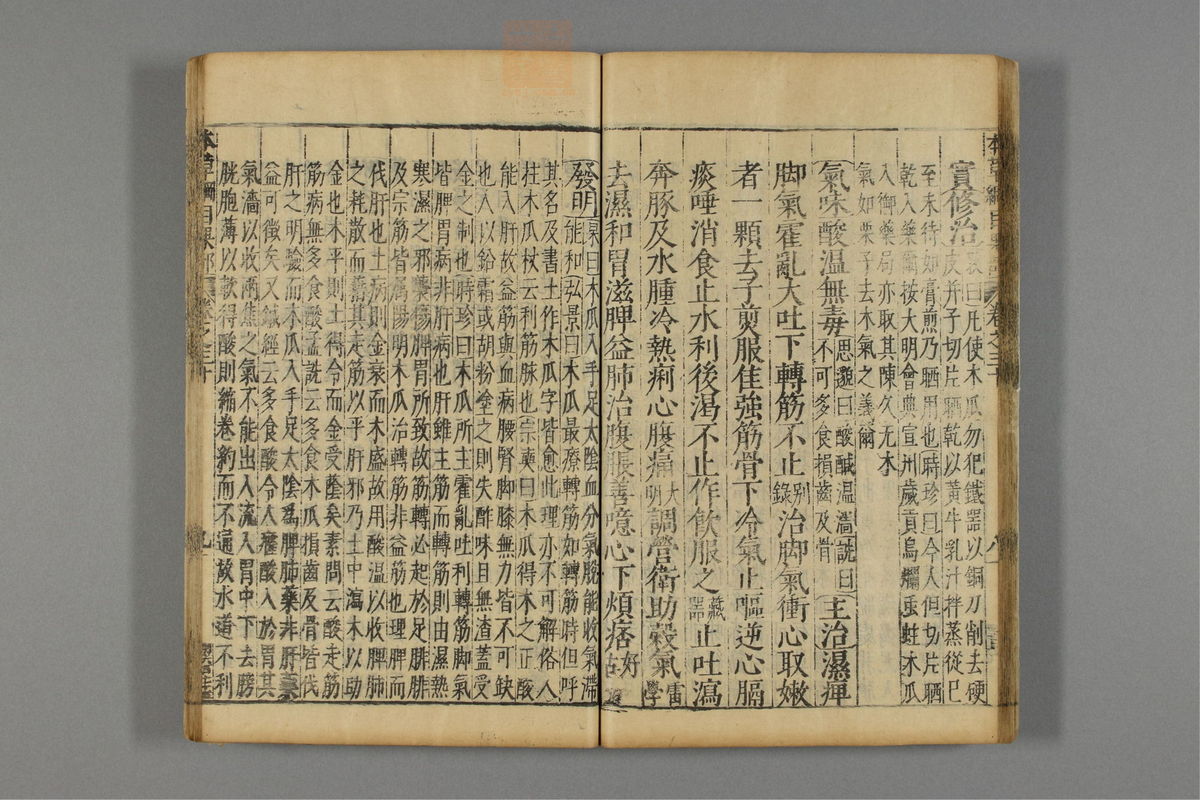 本草綱目果部 卷之三十 八
實修治 斅曰凡使木瓜勿犯鐵器以銅刀削去硬
皮并子切片晒乾以黃牛乳汁拌蒸從巳
至未待如膏煎乃晒用也時珍曰今人但切片晒
乾入藥爾按大明會典宣州歲貢烏爛蟲蛀木瓜
入御藥局亦取其陳久无木
氣如栗子去木氣之義爾
氣味酸溫無毒 思邈曰酸鹹溫濇詵曰不可多食損齒及骨 主治濕痺
脚氣霍亂大吐下轉筋不止別錄治脚氣衝心取嫩
者一顆去子煎服佳強筋骨下冷氣止嘔逆心膈
痰唾消食止水利後渴不止作飲服之藏器止吐瀉
奔豚及水腫冷熱痢心腹痛大明調營衛助穀氣雷學
去濕和胃滋脾益肺治腹脹善噫心下煩痞好古
發明 杲曰木瓜入手足太陰血分氣脫能收氣滯
能和弘景曰木瓜最療轉筋如轉筋時但呼
其名及書土作木瓜字皆愈此理亦不可解俗人
柱木瓜杖云利筋脉也宗奭曰木瓜得木之正酸
能入肝故益筋與血病腰腎脚膝無力皆不可缺
也人以鉛霜或胡粉塗之則失酢味且無渣蓋受
金之制也時珍曰木瓜所主霍亂吐利轉筋脚氣
皆脾胃病非肝病也肝雖主筋而轉筋則由濕熱
寒濕之邪襲傷脾胃所致故筋轉必起於足腓腓
及宗筋皆屬陽明木瓜治轉筋非益筋也理脾而
伐肝也土病則金衰而木盛故用酸溫以收脾肺
之耗散而藉其走筋以平肝邪乃土中瀉木以助
金也木平則土得令而金受蔭矣素問云酸走筋
筋病無多食酸孟詵云多食木瓜損齒及骨皆伐
肝之明驗而木瓜入手足太陰爲脾肺藥非肝藥
益可徵矣又鍼經云多食酸令人癃酸入於胃其
氣濇以收兩焦之氣不能出入流入胃中下去膀
胱胞薄以軟得酸則縮卷約而不通故水道不利
本草綱目果部 卷之三十 九